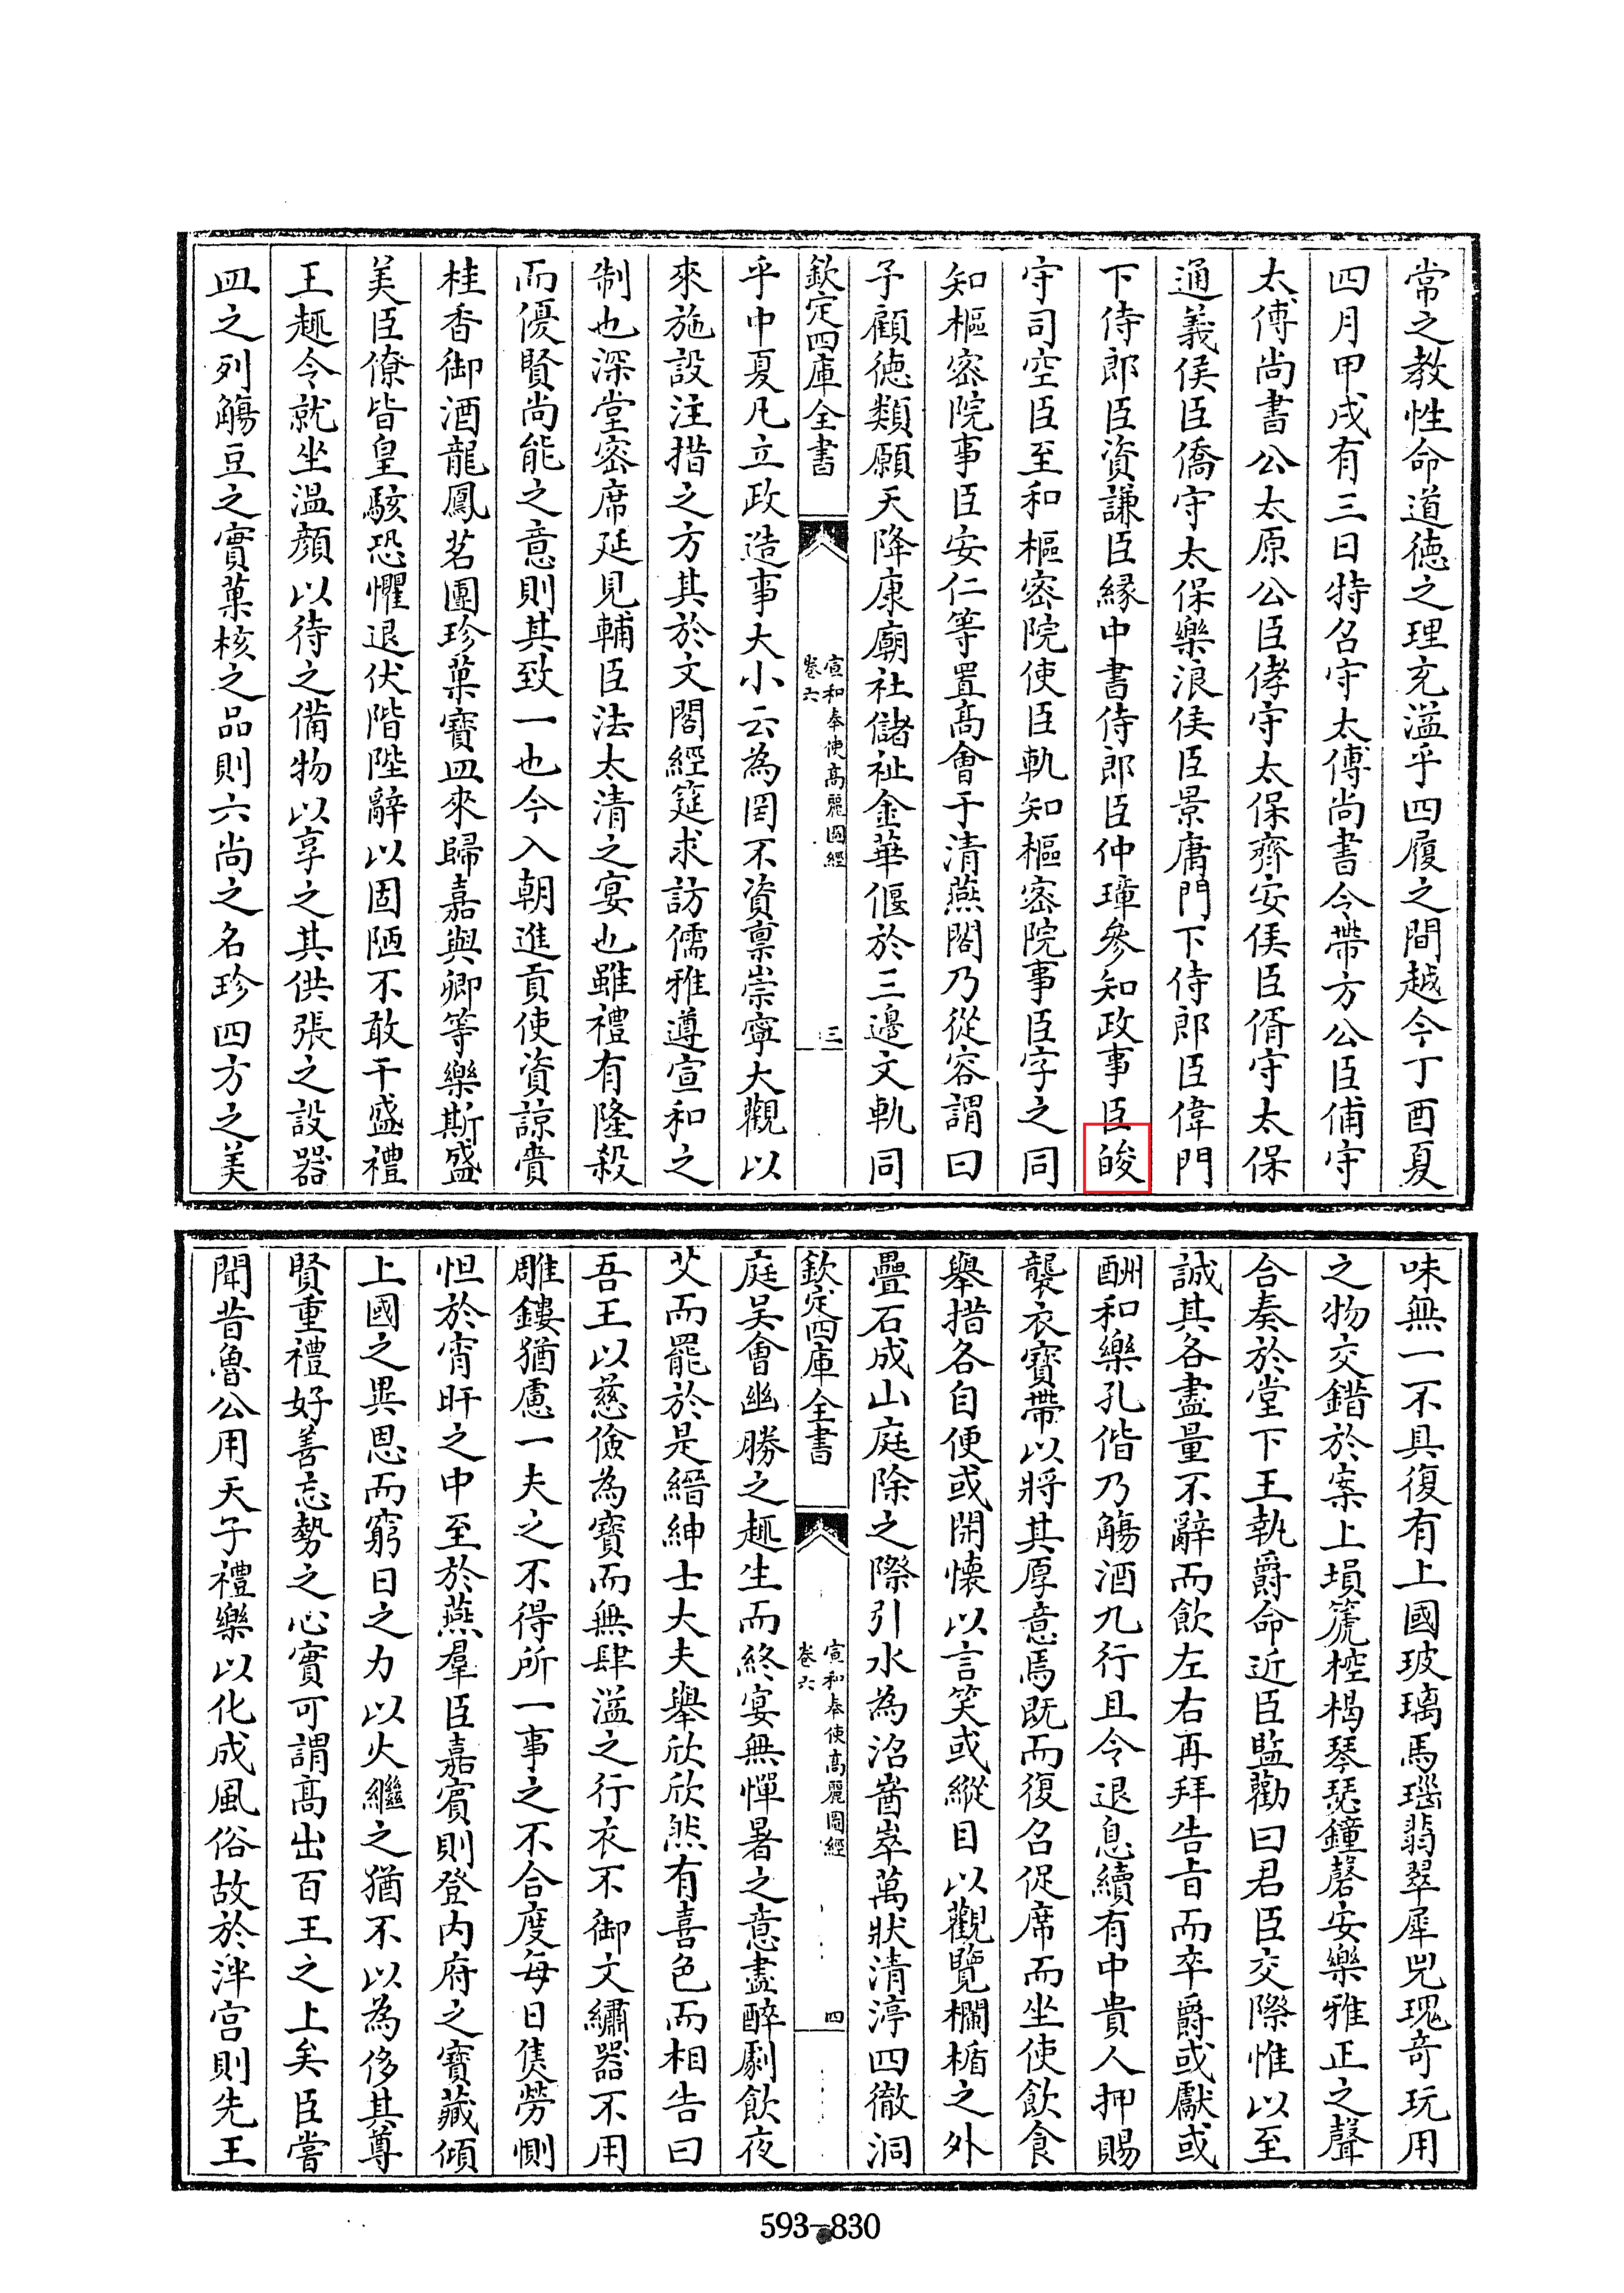 常之教性命道德之理充溢乎四履之間越今丁酉夏
四月甲戌有三日特召守太傅尚書令帶方公臣俌守
太傅尚書公太原公臣侾守太保齊安侯臣偦守太保
通義侯臣僑守太保樂浪侯臣景庸門下侍郎臣偉門
下侍郎臣資謙臣緣中書侍郎臣仲璋參知政事臣晙
守司空臣至和樞密院使臣軌知樞密院事臣字之同
知樞密院事臣安仁等置高會于清燕閣乃從容謂曰
子顧德類願天降康廟社儲祉金華偃於三邊文軌同
欽定四庫全書
宣和奉使高麗圖經
卷六
三
乎中夏凡立政造事大小云為罔不資禀崇寧大觀以
來施設注措之方其於文閣經筵求訪儒雅遵宣和之
制也深堂密席延見輔臣法太清之宴也雖禮有隆殺
而優賢尚能之意則其致一也今入朝進貢使資諒賫
桂香御酒龍鳳茗團珍菓寶皿來歸嘉與卿等樂斯盛
美臣僚皆皇駭恐懼退伏階陛辭以固陋不敢干盛禮
王趣令就坐温顔以待之備物以享之其供張之設器
皿之列觴豆之實菓核之品則六尚之名珍四方之美
味無一不具復有上國玻璃馬瑙翡翠犀兕瑰竒玩用
之物交錯於案上塤箎椌楬琴瑟鐘磬安樂雅正之聲
合奏於堂下王執爵命近臣監勸曰君臣交際惟以至
誠其各盡量不辭而飲左右再拜告旨而卒爵或獻或
酬和樂孔偕乃觴酒九行且令退息續有中貴人押賜
襲衣寶帶以將其厚意焉既而復召促席而坐使飲食
舉措各自便或開懷以言笑或縱目以觀覽欄楯之外
疊石成山庭除之際引水為沼崷崒萬狀清渟四徹洞
欽定四庫全書
宣和奉使高麗圖經
卷六
四
庭吳會幽勝之趣生而終宴無憚暑之意盡醉劇飲夜
艾而罷於是縉紳士大夫舉欣欣然有喜色而相告曰
吾王以慈儉為寶而無肆溢之行衣不御文繡器不用
雕鏤猶慮一夫之不得所一事之不合度每日焦勞惻
怛於宵旰之中至於燕羣臣嘉賓則登内府之寶藏傾
上國之異恩而窮日之力以火繼之猶不以為侈其尊
賢重禮好善忘勢之心實可謂高出百王之上矣臣嘗
聞昔魯公用天子禮樂以化成風俗故於泮宫則先王
593-830